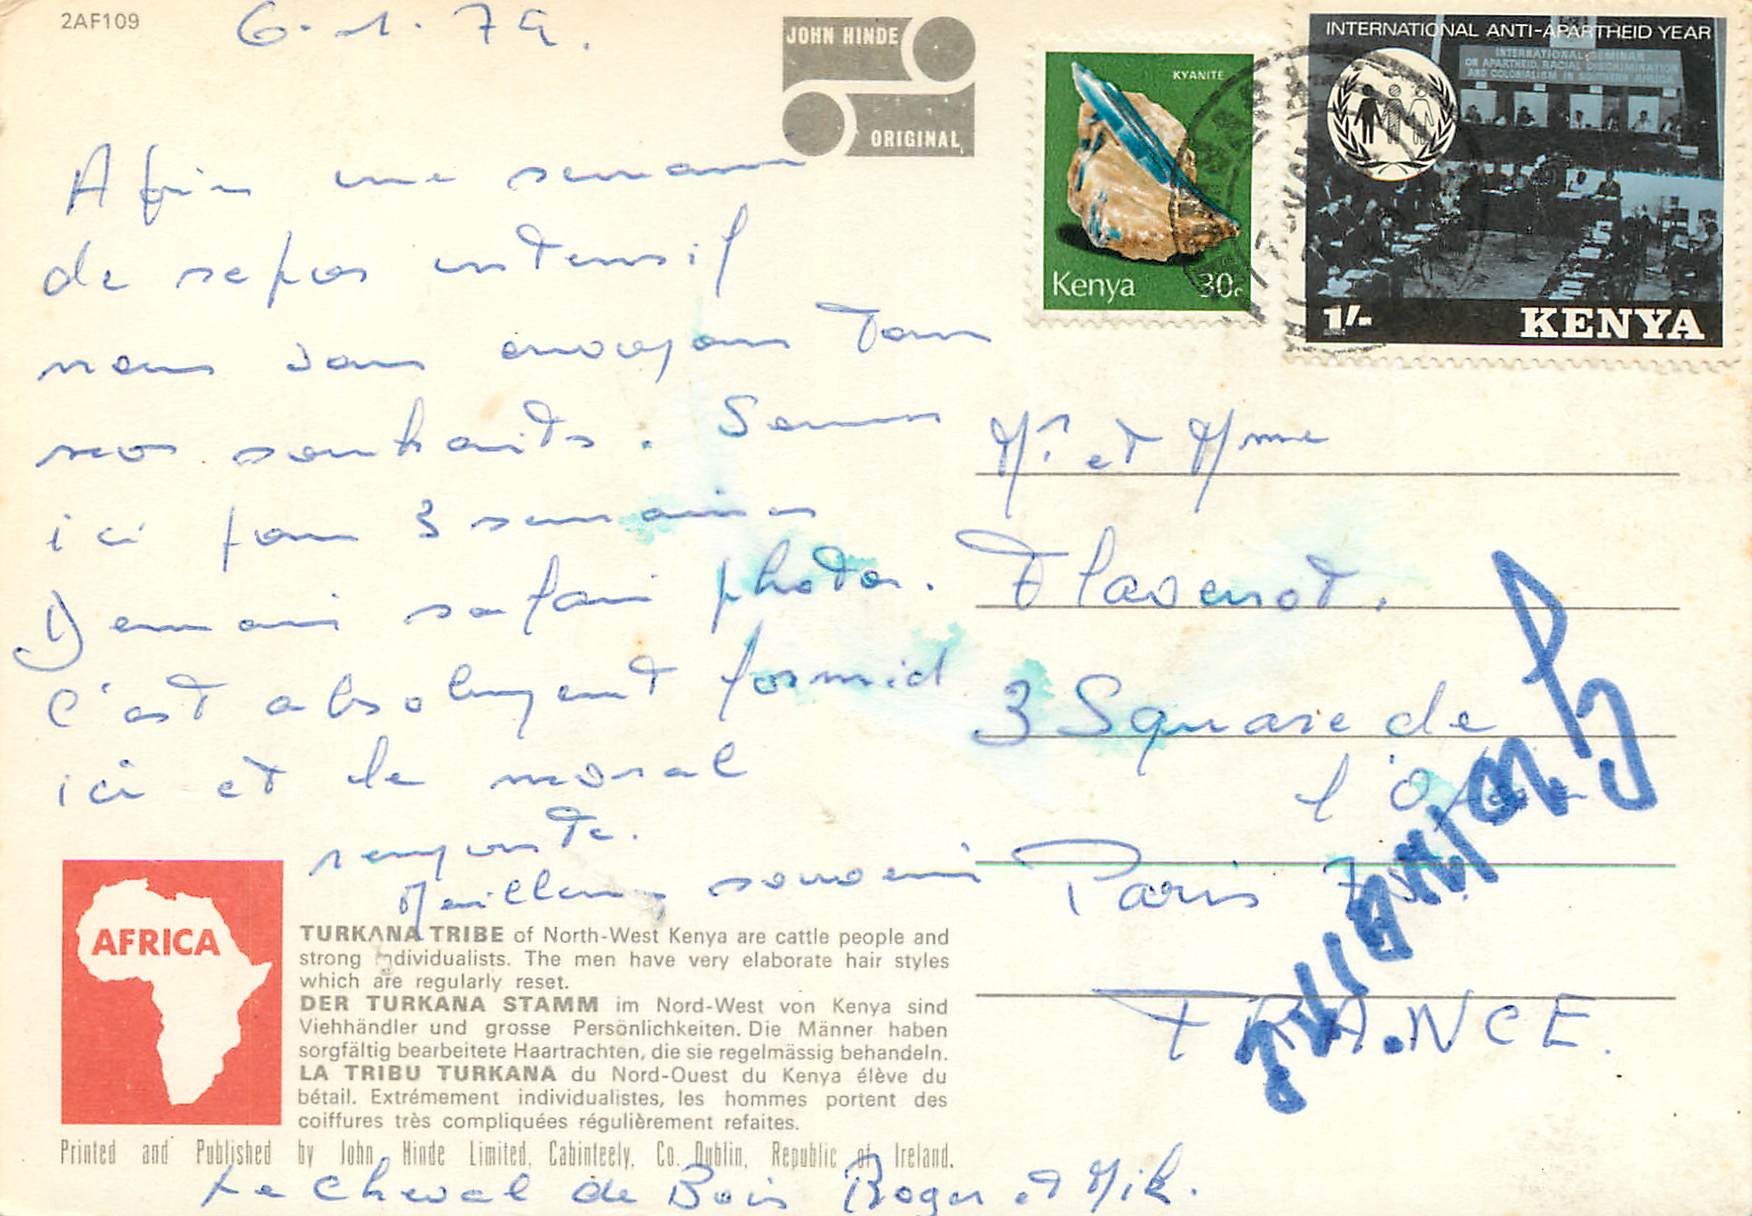 2AF109
6.1.79.
JOHN HINDE
ORIGINAL
KYANITE
Kenya 30c
INTERNATIONAL ANTI-APARTHEID YEAR
INTERNATIONAL SEMINAR
ON APARTHEID, RACIAL DISCRIMINATION
AND COLONIALISM IN SOUTHERN AFRICA
1/- KENYA
Après une semaine
de repos intensif
nous vous envoyons tous
nos souhaits. Sommes
ici pour 3 semaines
Demain safari photos.
C'est absolument formid
ici et le moral
remonte.
Meilleurs souvenirs
Mr et Mme
Flavenot.
3 Square de
l'
Paris
FRANCE.
AFRICA
TURKANA TRIBE of North-West Kenya are cattle people and
strong individualists. The men have very elaborate hair styles
which are regularly reset.
DER TURKANA STAMM im Nord-West von Kenya sind
Viehhändler und grosse Persönlichkeiten. Die Männer haben
sorgfältig bearbeitete Haartrachten, die sie regelmässig behandeln.
LA TRIBU TURKANA du Nord-Ouest du Kenya élève du
bétail. Extrémement individualistes, les hommes portent des
coiffures très compliquées régulièrement refaites.
Printed and Published by John Hinde Limited, Cabinteely, Co. Dublin, Republic of Ireland.
Le Cheval de Bois Roger et Mik.